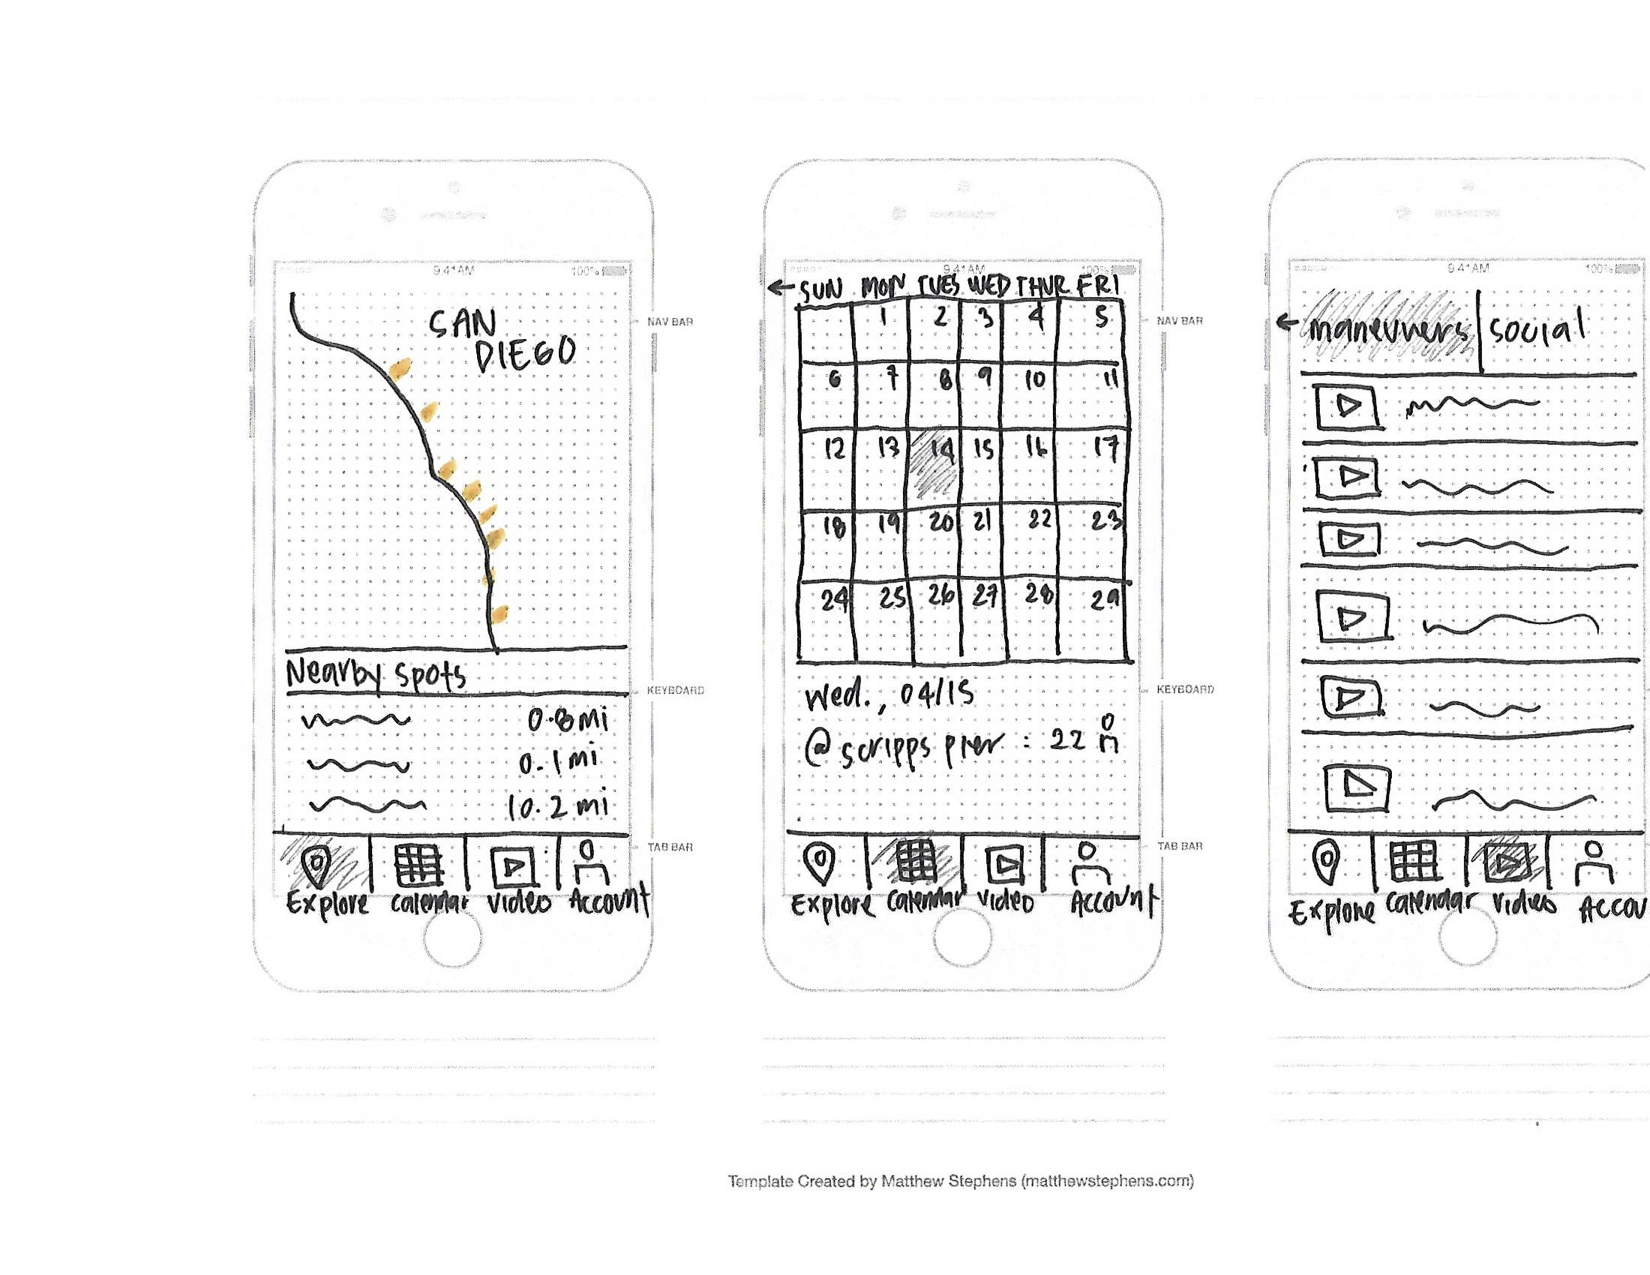 9:41AM 100%
SAN
DIEGO
NAV BAR
Nearby spots
KEYBOARD
0.8mi
0.1mi
10.2mi
TAB BAR
Explore Calendar Video Account
9:41AM 100%
← SUN MON TUES WED THUR FRI
1 2 3 4 5
6 7 8 9 10 11
12 13 14 15 16 17
18 19 20 21 22 23
24 25 26 27 28 29
NAV BAR
KEYBOARD
Wed., 04/15
@ scripps pier : 22
TAB BAR
Explore Calendar Video Account
9:41AM 100%
← maneuvers social
Explore Calendar Video Accou
Template Created by Matthew Stephens (matthewstephens.com)